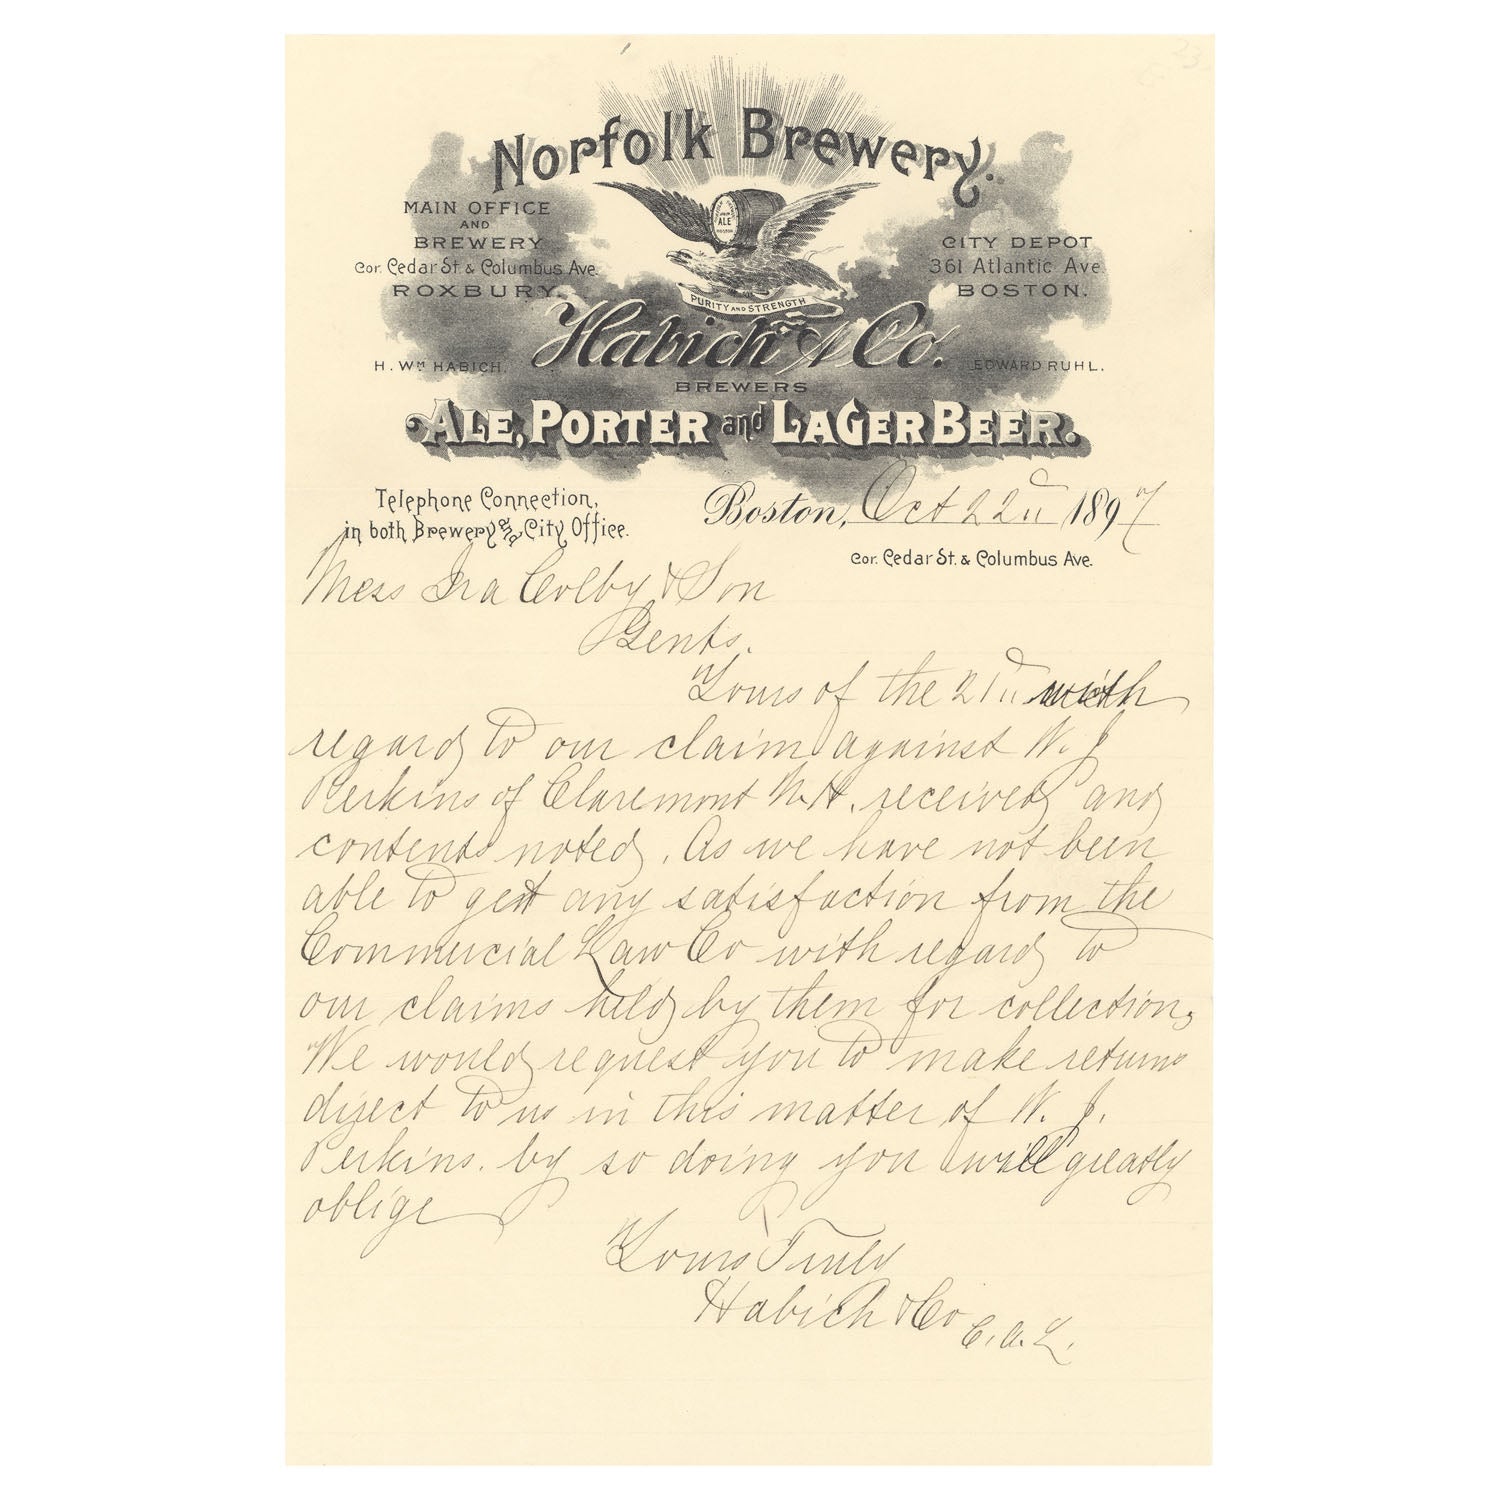 Norfolk Brewery.
MAIN OFFICE
AND
BREWERY
Cor. Cedar St. & Columbus Ave.
ROXBURY.
ALE
BOSTON
CITY DEPOT
361 Atlantic Ave
BOSTON.
PURITY AND STRENGTH
H. Wm HABICH.
Habich & Co.
EDWARD RUHL.
BREWERS
ALE, PORTER and LAGER BEER.
Telephone Connection,
in both Brewery and City Office.
Boston, Oct 22d 1897
Cor. Cedar St. & Columbus Ave.
Mess Ira Colby & Son
Gents.
Yours of the 21d with
regard to our claim against W. J
Perkins of Claremont N.H. received and
contents noted. As we have not been
able to get any satisfaction from the
Commercial Law Co with regard to
our claims held by them for collection,
We would request you to make returns
direct to us in this matter of W. J.
Perkins. by so doing you will greatly
oblige
Yours Truly
Habich & Co
C. A. L.